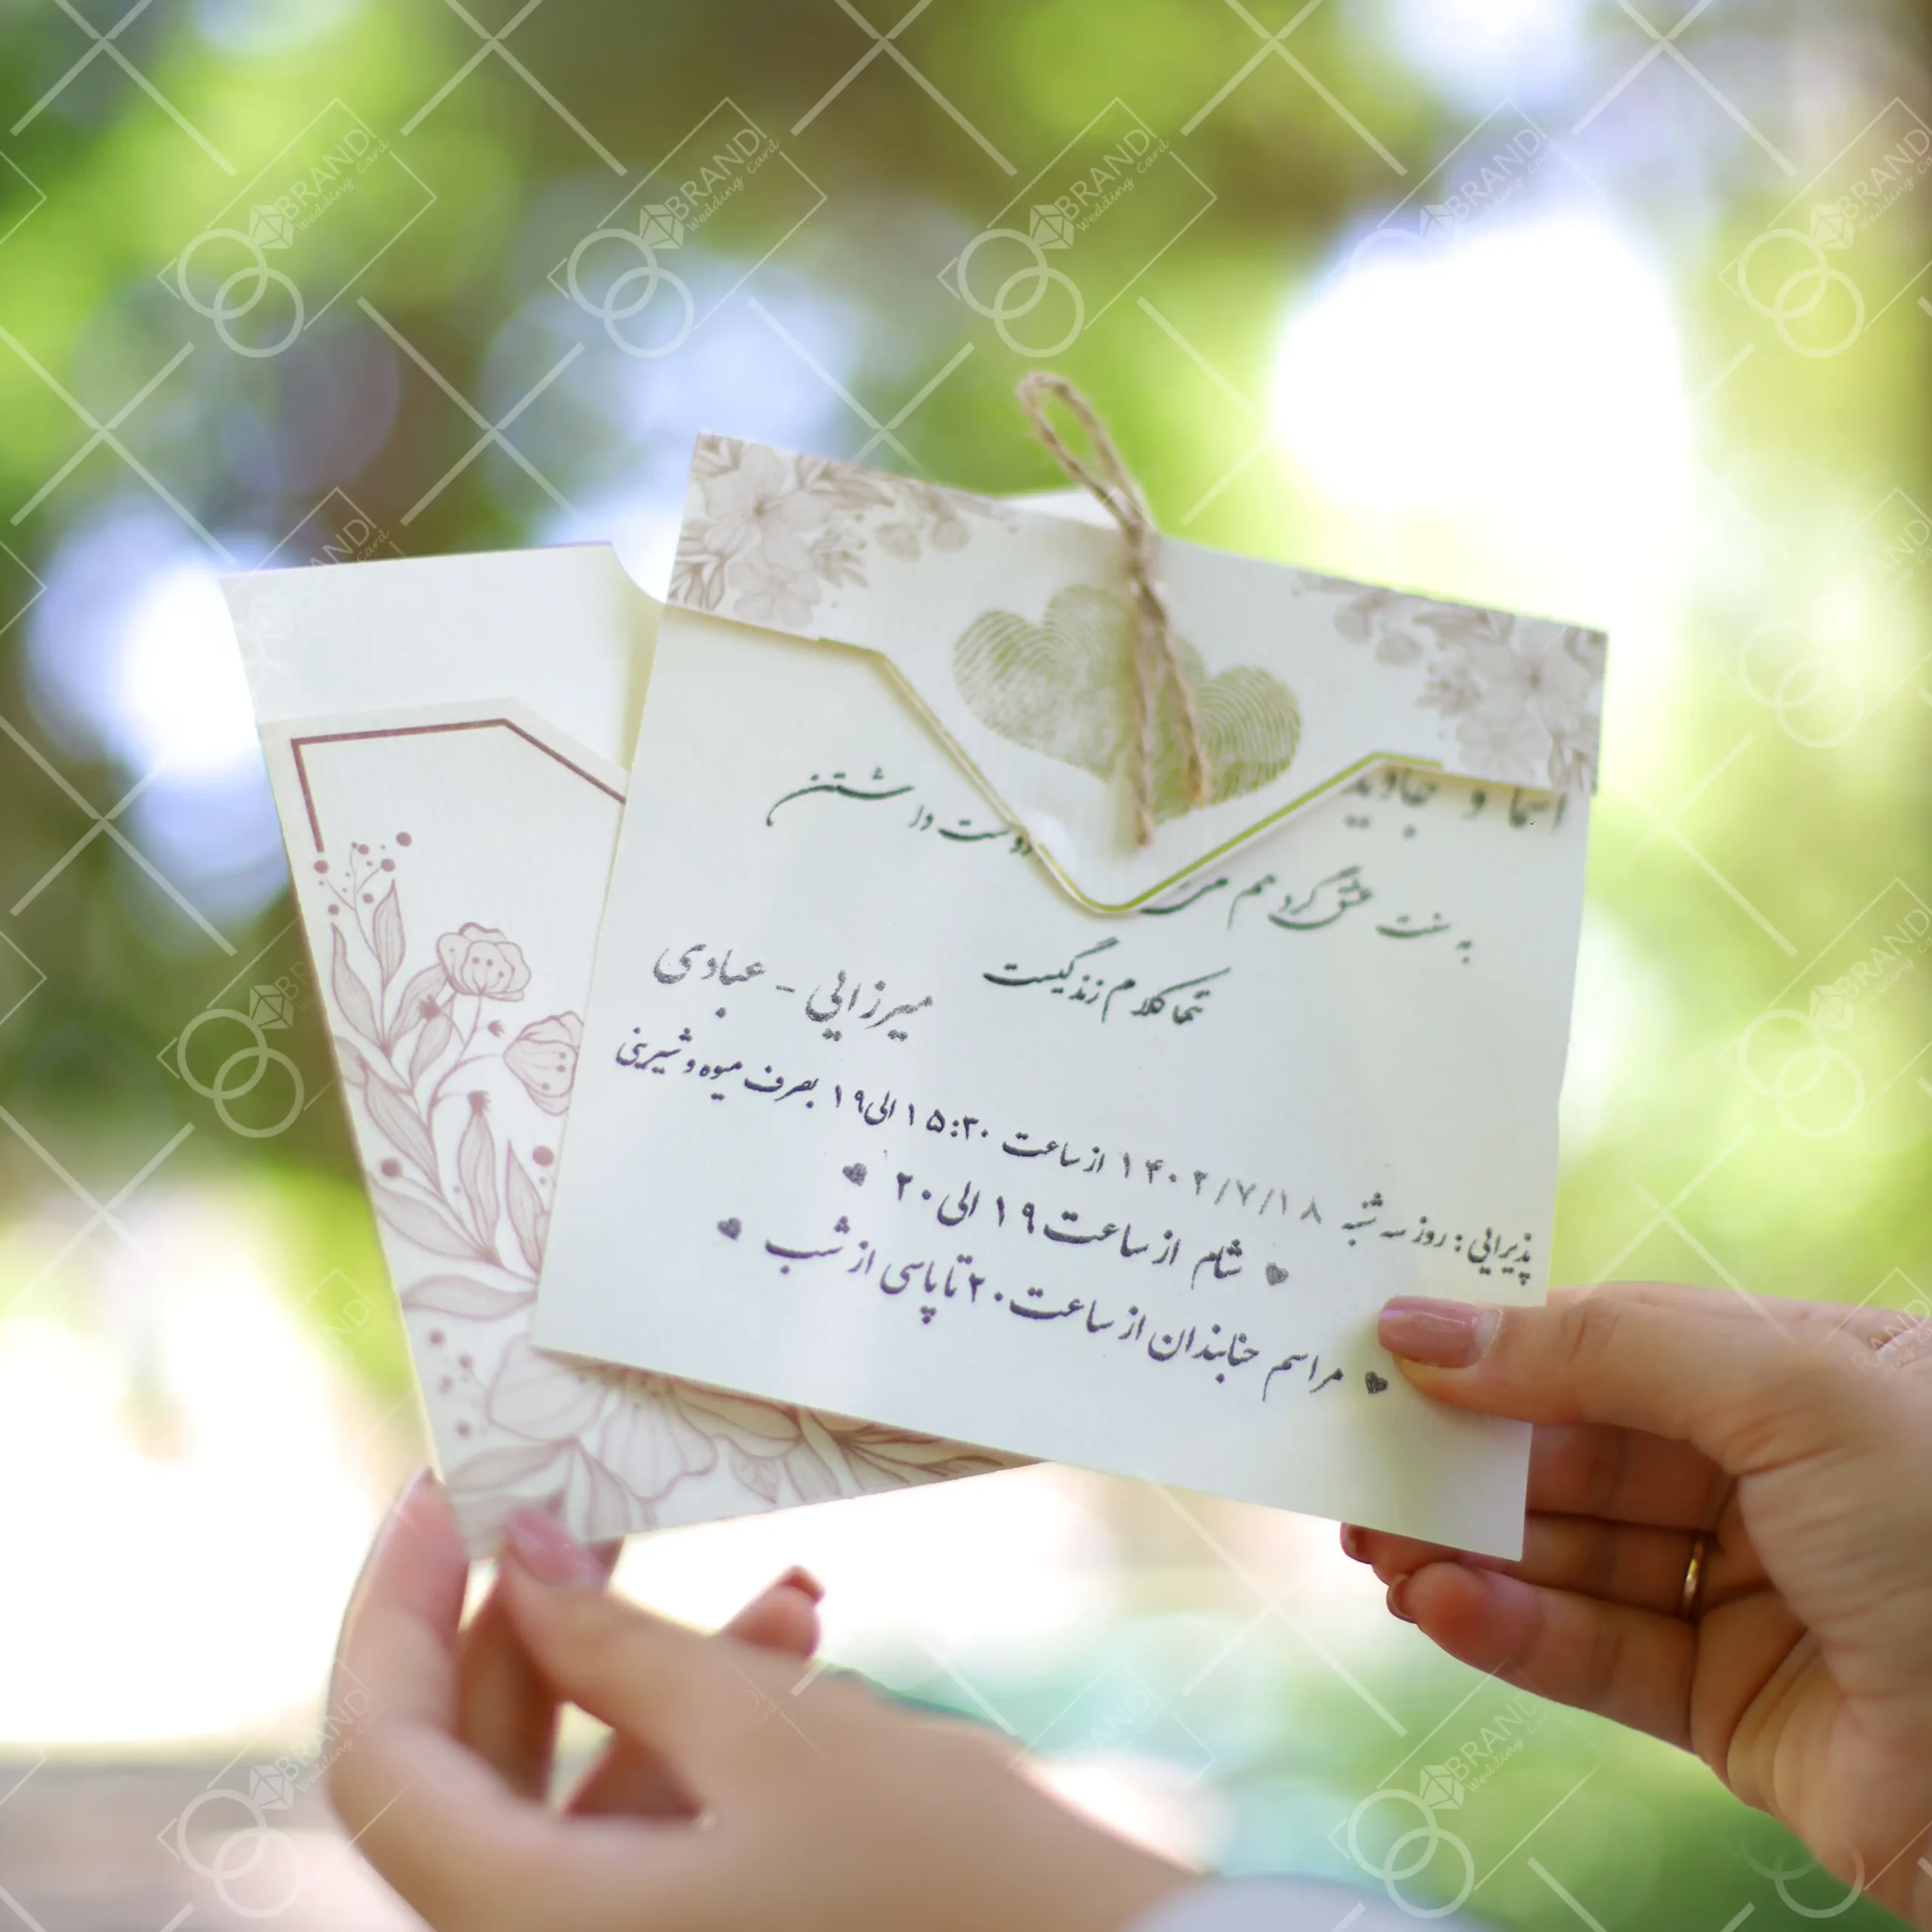 اسما و جاوید
دوست داشتن
به سنت عشق گرد هم می
تنها کلام زندگیست
میرزایی - عبادی
پذیرایی : روز سه شنبه ۱۴۰۲/۷/۱۸ از ساعت ۱۵:۳۰ الی ۱۹ بصرف میوه و شیرینی
شام از ساعت ۱۹ الی ۲۰
مراسم حنابندان از ساعت ۲۰ تا پاسی از شب
BRAND!
Wedding Card